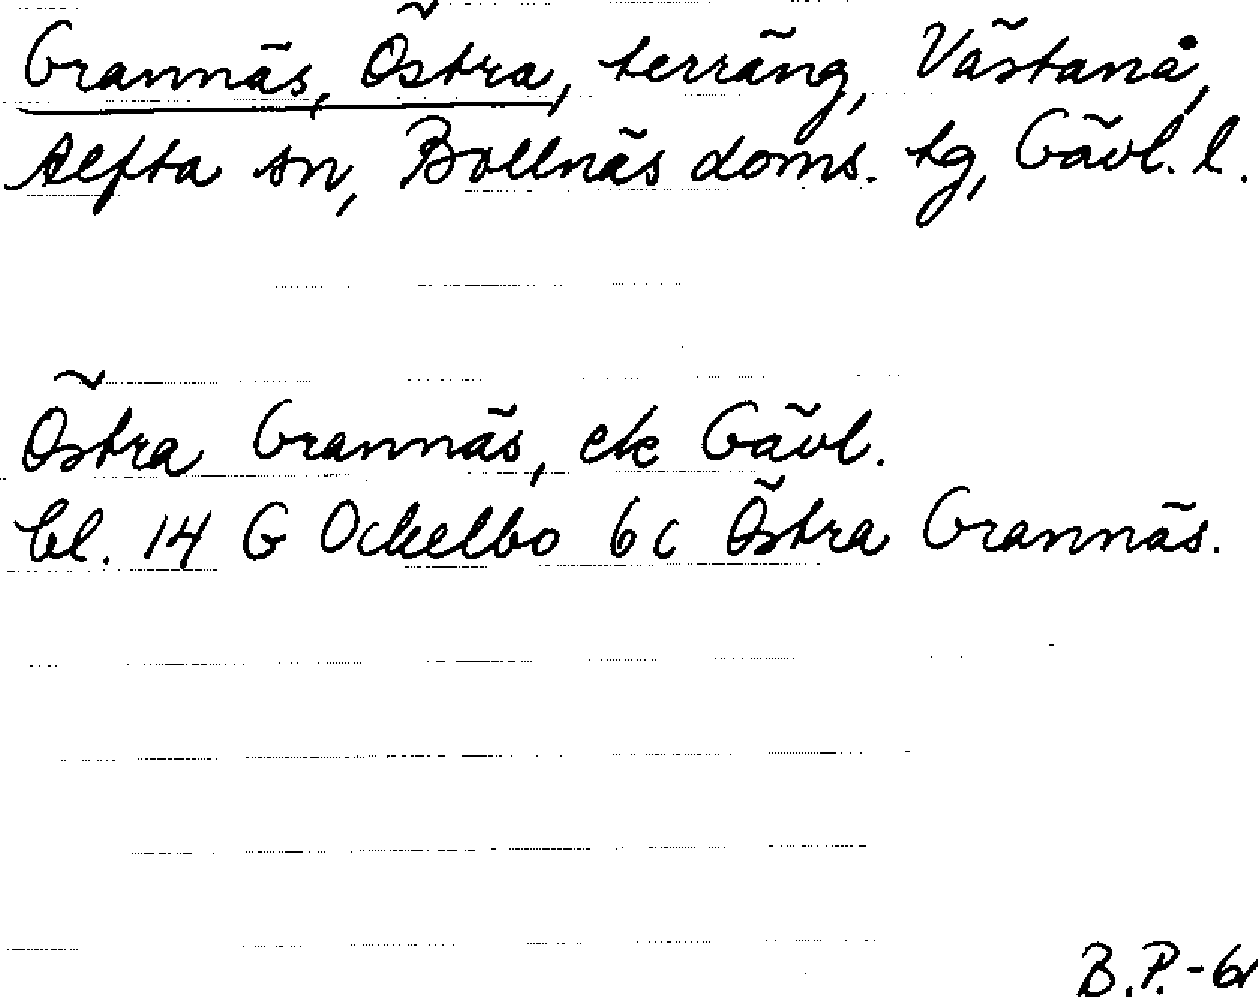 Grannäs, Östra, terräng, Västanå,
Alfta sn, Bollnäs doms. tg, Gävl. l.
Östra Grannäs, ek Gävl.
bl. 14 G Ockelbo 6c Östra Grannäs.
B.P.-61